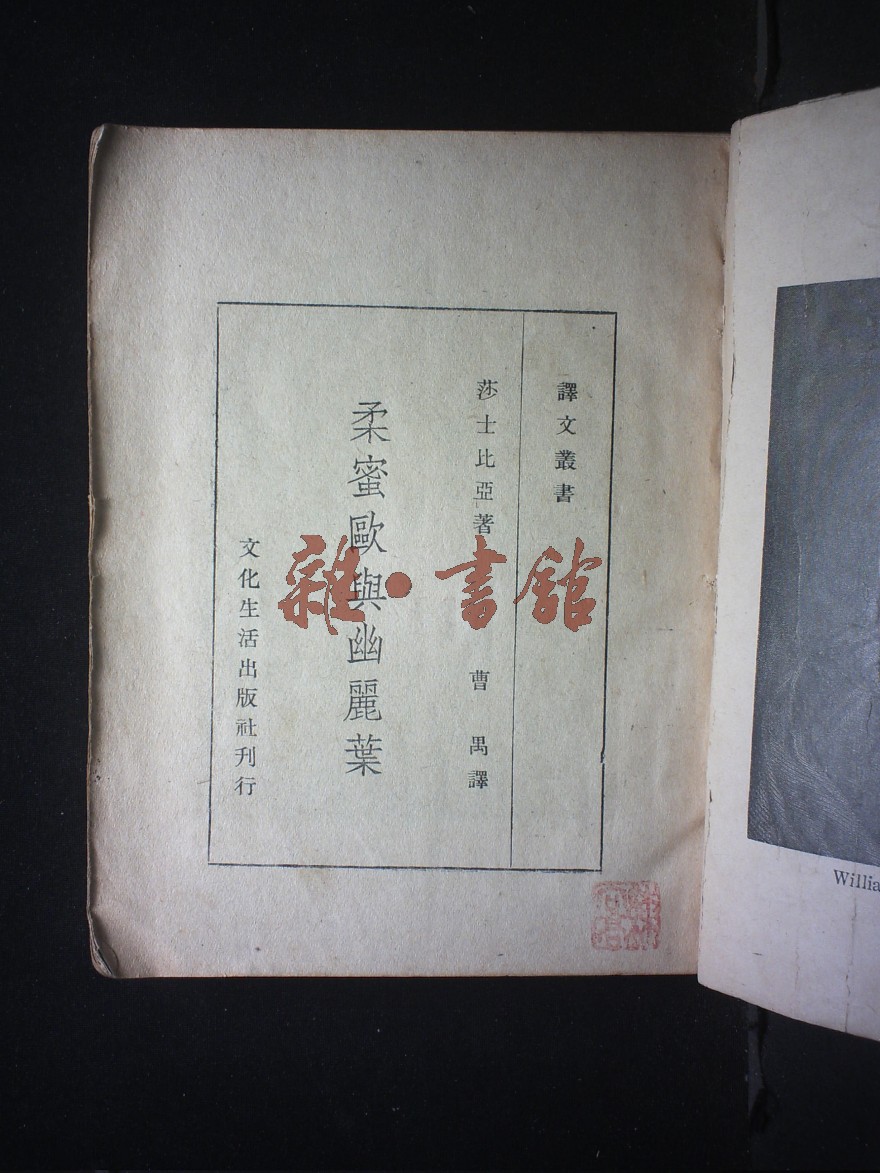 譯文叢書
莎士比亞著 曹禺譯
柔蜜歐與幽麗葉
文化生活出版社刊行
雜·書館
Willia